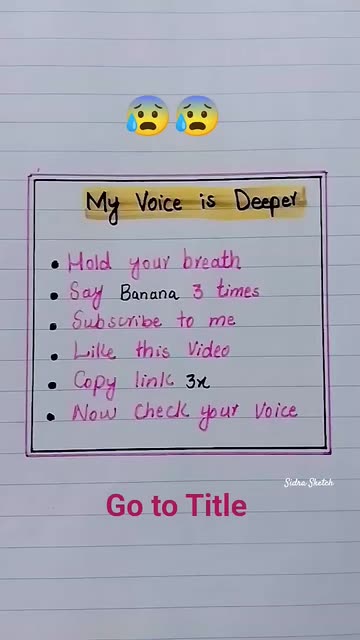 My Voice is Deeper
Hold your breath
Say Banana 3 times
Subscribe to me
Like this Video
Copy link 3x
Now Check your Voice
Sidra Sketch
Go to Title